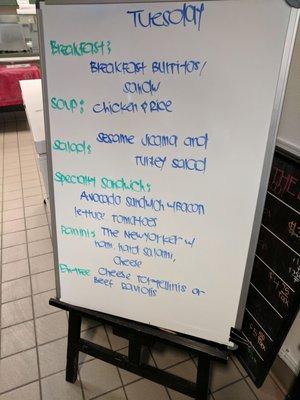 Tuesday
Breakfast:
Breakfast Burritos/
Sandw
Soup: Chicken & Rice
Salads: Sesame Jicama and
Turkey Salad
Specialty Sandwich:
Avocado Sandwich w/Bacon
lettuce tomatoes
Paninis: The New Yorker w/
ham, hard salami,
cheese
Entree: Cheese tortellinis or
Beef Raviolis
THE